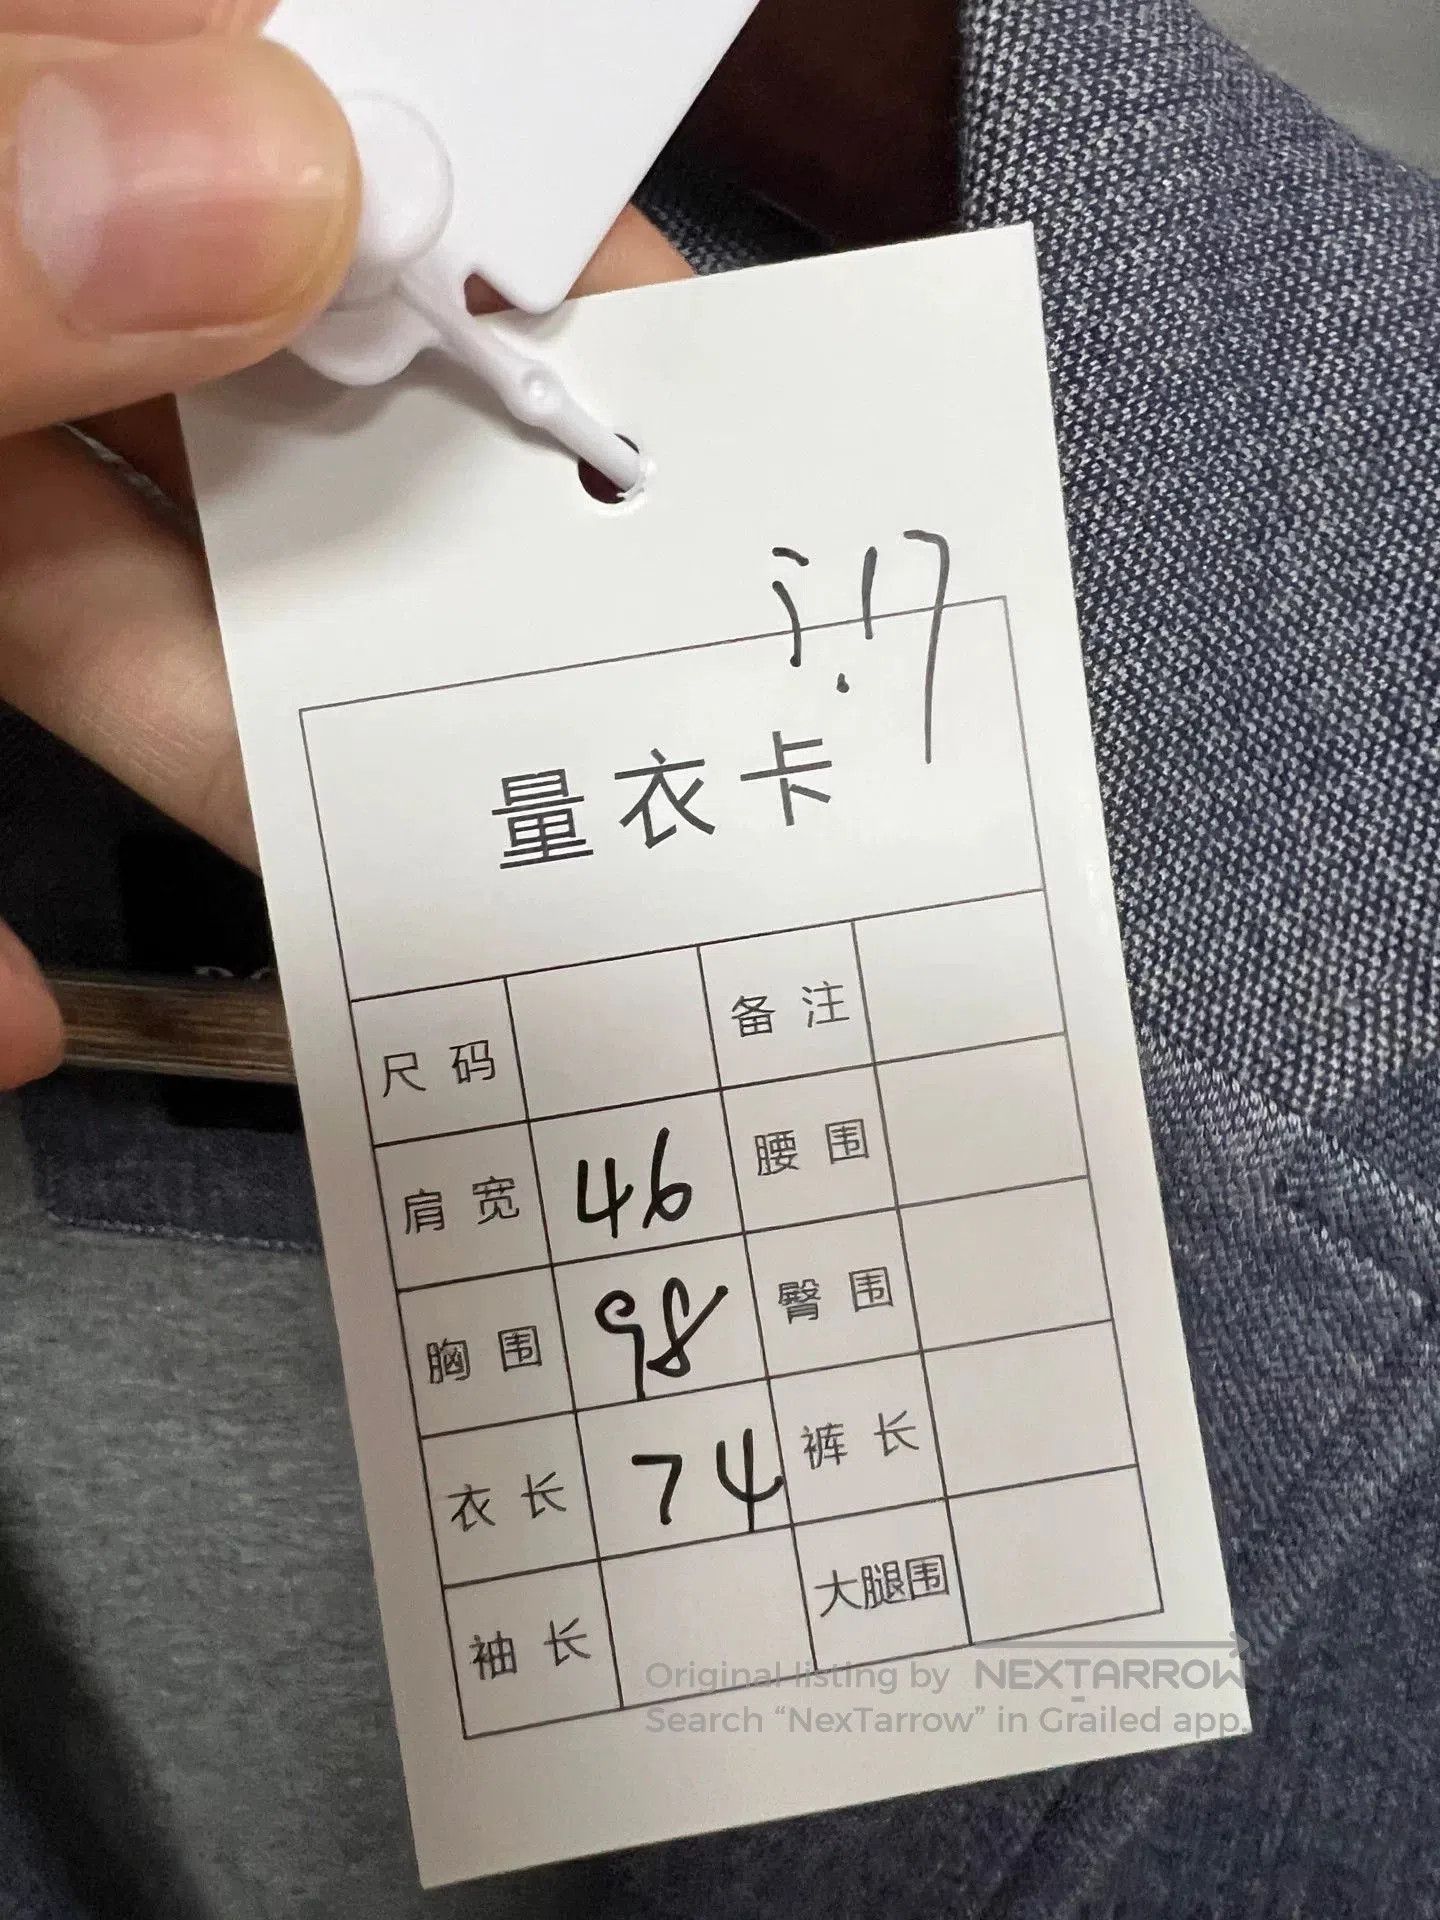 5.17
量衣卡
尺码 备注
肩宽 46 腰围
胸围 98 臀围
衣长 74 裤长
袖长 大腿围
Original listing by NEXTARROW
Search “NexTarrow” in Grailed app.